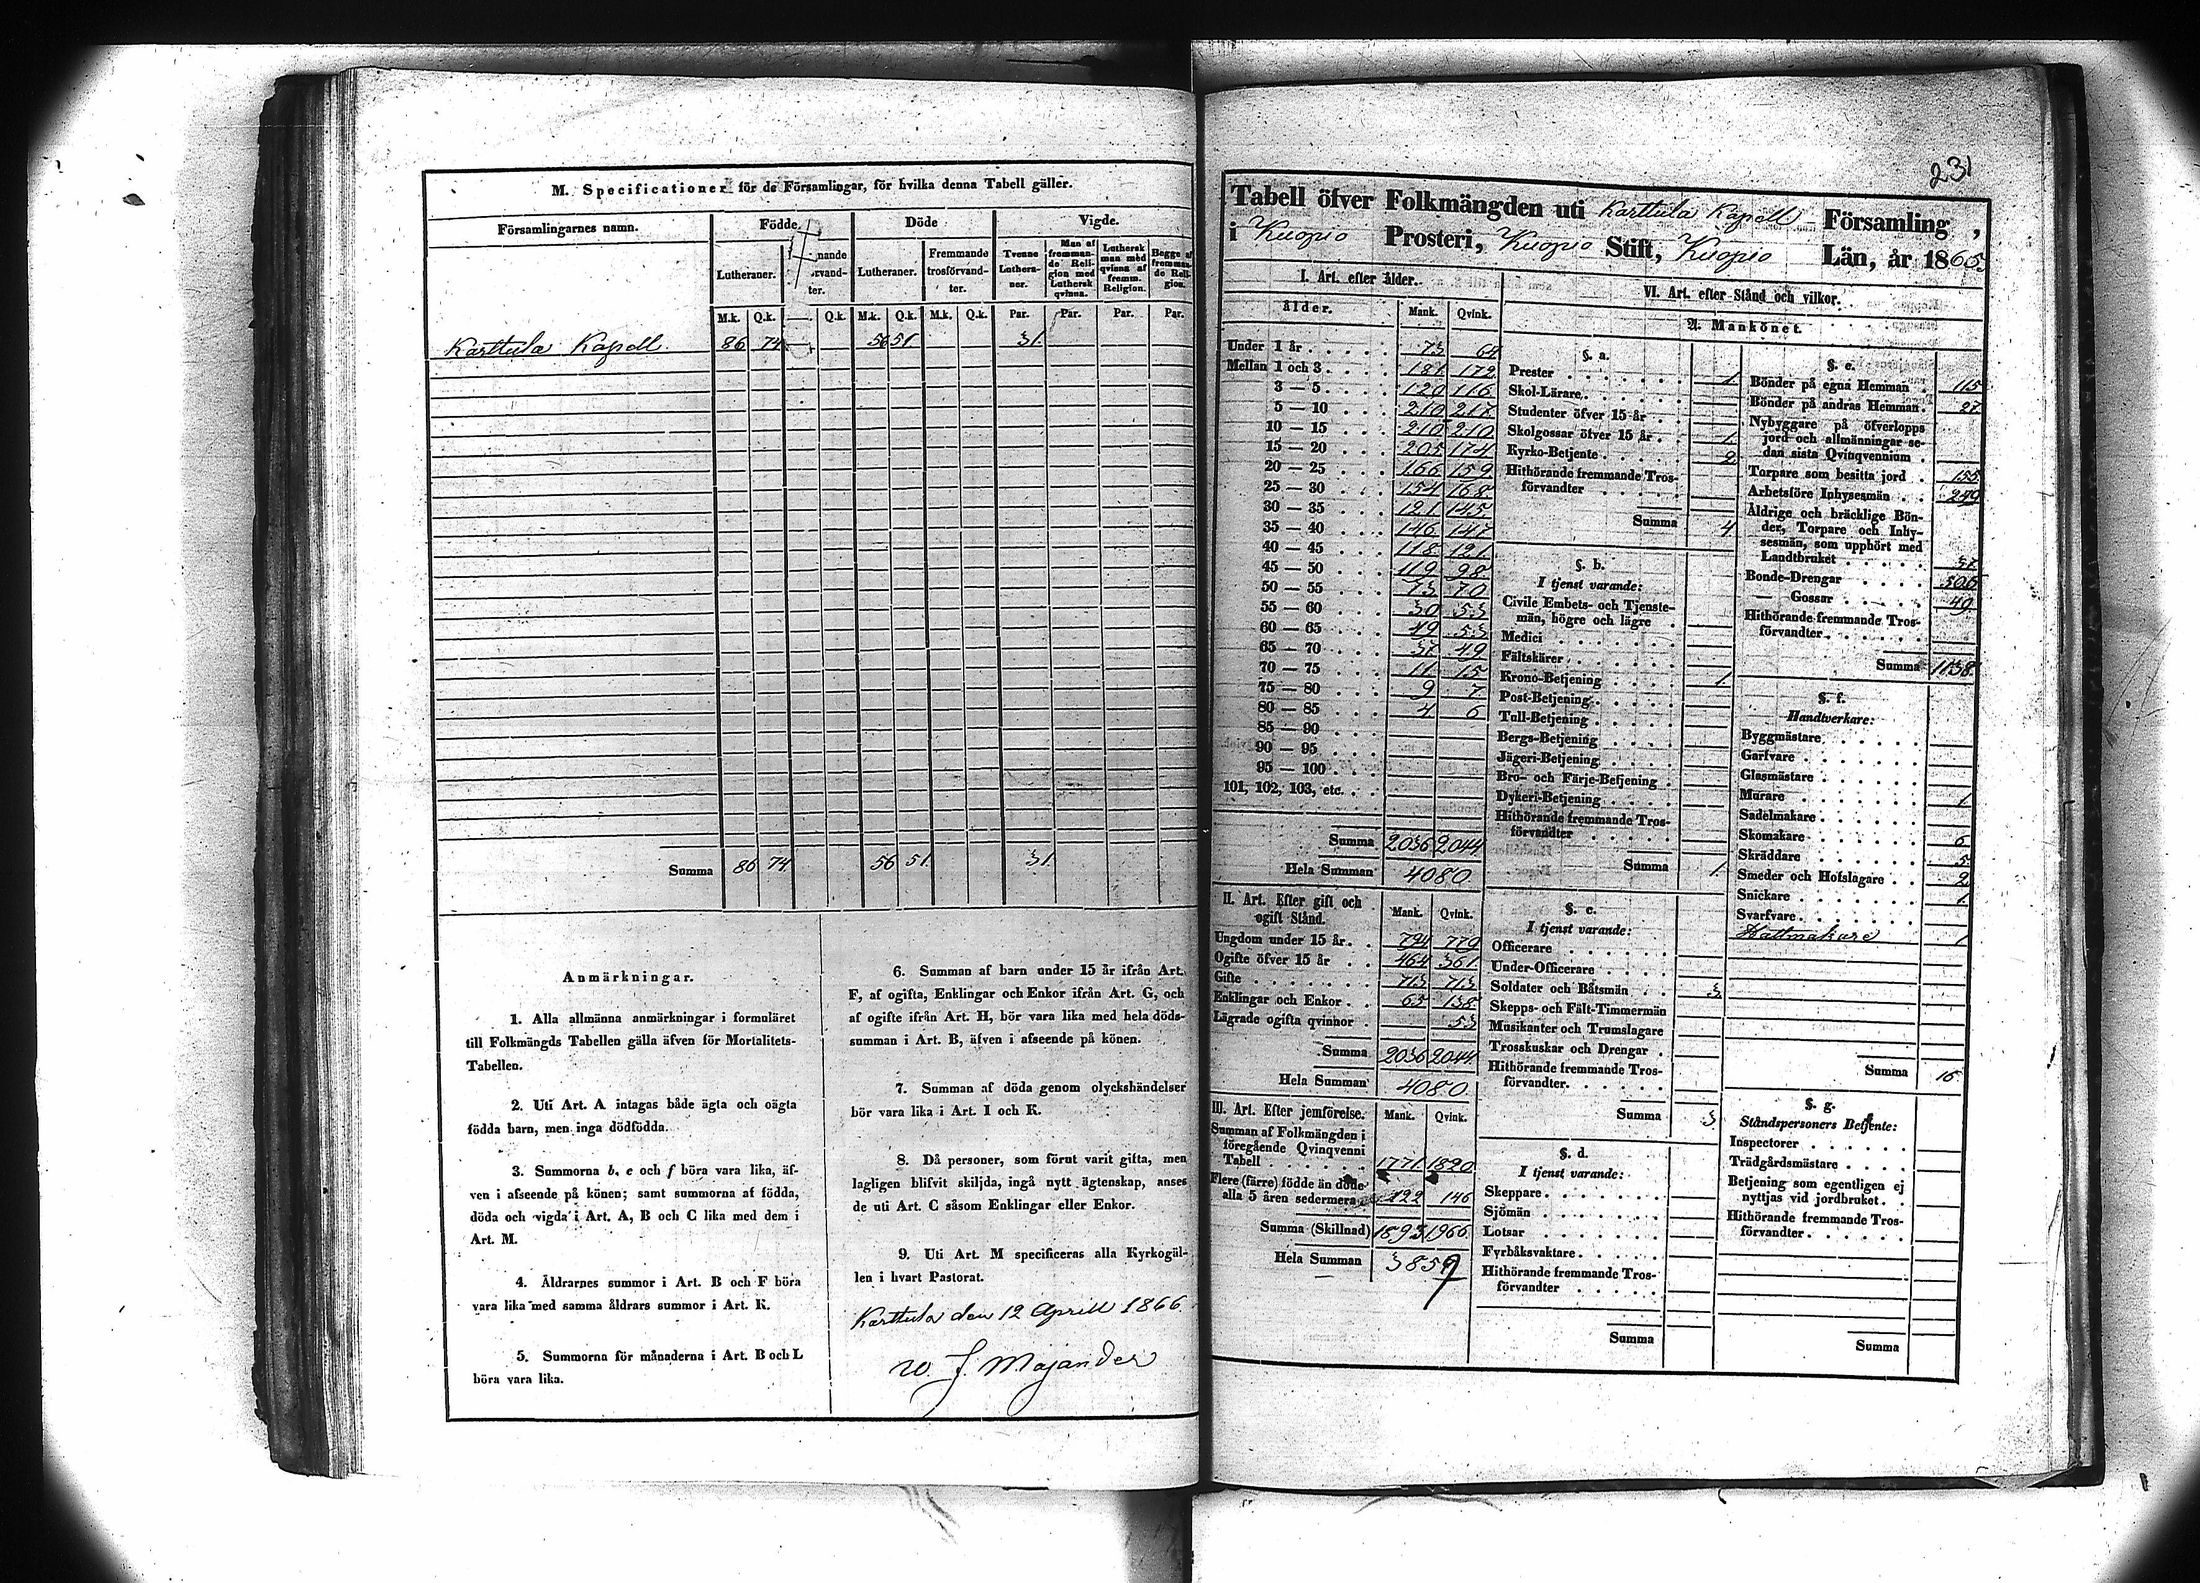 M. Specificationer för de Församlingar, för hvilka denna Tabell gäller.
Församlingarnes namn. Födde Döde Vigde.
Lutheraner. Lutheraner. Fremmande trosförvandter. Tvenne Lutheraner. Man af fremmande Religion med Luthersk qvinna. Luthersk man med qvinna af fremm. Religion. Begge af fremmande Religion.
M.k. Q.k. Q.k. M.k. Q.k. M.k. Q.k. Par. Par. Par. Par.
Karttula Kapell. 86 74 56 51 31.
Summa 86 74 56 51 31
Anmärkningar.
1. Alla allmänna anmärkningar i formuläret
till Folkmängds Tabellen gälla äfven för Mortalitets-
Tabellen.
2. Uti Art. A intagas både ägta och oägta
födda barn, men inga dödfödda.
3. Summorna b, e och f böra vara lika, äf-
ven i afseende på könen; samt summorna af födda,
döda och vigda i Art. A, B och C lika med dem i
Art. M.
4. Åldrarnes summor i Art. B och F böra
vara lika med samma åldrars summor i Art. K.
5. Summorna för månaderna i Art. B och L
böra vara lika.
6. Summan af barn under 15 år ifrån Art.
F, af ogifta, Enklingar och Enkor ifrån Art. G, och
af ogifte ifrån Art. H, bör vara lika med hela döds-
summan i Art. B, äfven i afseende på könen.
7. Summan af döda genom olyckshändelser
bör vara lika i Art. I och K.
8. Då personer, som förut varit gifta, men
lagligen blifvit skiljda, ingå nytt ägtenskap, anses
de uti Art. C såsom Enklingar eller Enkor.
9. Uti Art. M specificeras alla Kyrkogäl-
len i hvart Pastorat.
Karttula den 12 Aprill 1866
W. J. Majander
231
Tabell öfver Folkmängden uti Karttula Kapell Församling,
i Kuopio Prosteri, Kuopio Stift, Kuopio Län, år 1865.
I. Art. efter ålder.
Ålder. Mank. Qvink.
Under 1 år 73 64
Mellan 1 och 3 181 172
3 — 5 120 116
5 — 10 210 217
10 — 15 210 210
15 — 20 205 174
20 — 25 166 159
25 — 30 154 168
30 — 35 121 145
35 — 40 146 147
40 — 45 118 121
45 — 50 119 98
50 — 55 73 70
55 — 60 30 53
60 — 65 49 53
65 — 70 37 49
70 — 75 11 15
75 — 80 9 7
80 — 85 4 6
85 — 90
90 — 95
95 — 100
101, 102, 103, etc.
Summa 2036 2044
Hela Summan 4080
II. Art. Efter gift och ogift Stånd. Mank. Qvink.
Ungdom under 15 år 794 779
Ogifte öfver 15 år 464 361
Gifte 713 713
Enklingar och Enkor 65 138
Lägrade ogifta qvinnor 53
Summa 2036 2044
Hela Summan 4080
III. Art. Efter jemförelse. Mank. Qvink.
Summan af Folkmängden i
föregående Qvinqvenni
Tabell 1771 1820
Flere (färre) födde än döde
alla 5 åren sedermera 122 146
Summa (Skillnad) 1893 1966
Hela Summan 3859
VI. Art. efter Stånd och vilkor.
A. Mankönet.
§. a.
Prester 1
Skol-Lärare
Studenter öfver 15 år
Skolgossar öfver 15 år 1
Kyrko-Betjente 2
Hithörande fremmande Tros-
förvandter
Summa 4
§. b.
I tjenst varande:
Civile Embets- och Tjenste-
män, högre och lägre
Medici
Fältskärer
Krono-Betjening 1
Post-Betjening
Tull-Betjening
Bergs-Betjening
Jägeri-Betjening
Bro- och Färje-Betjening
Dykeri-Betjening
Hithörande fremmande Tros-
förvandter
Summa 1
§. c.
I tjenst varande:
Officerare
Under-Officerare
Soldater och Båtsmän 3
Skepps- och Fält-Timmermän
Musikanter och Trumslagare
Trosskuskar och Drengar
Hithörande fremmande Tros-
förvandter
Summa 3
§. d.
I tjenst varande:
Skeppare
Sjömän
Lotsar
Fyrbåksvaktare
Hithörande fremmande Tros-
förvandter
Summa
§. e.
Bönder på egna Hemman 115
Bönder på andras Hemman 27
Nybyggare på öfverlopps
jord och allmänningar se-
dan sista Qvinqvennium
Torpare som besitta jord 155
Arbetsföre Inhysesmän 249
Åldrige och bräcklige Bön-
der, Torpare och Inhy-
sesmän, som upphört med
Landtbruket 37
Bonde-Drengar 506
— Gossar 49
Hithörande fremmande Tros-
förvandter
Summa 1138
§. f.
Handtverkare:
Byggmästare
Garfvare
Glasmästare
Murare 1
Sadelmakare
Skomakare 6
Skräddare 5
Smeder och Hofslagare 2
Snickare 1
Svarfvare
Hattmakare 1
Summa 16
§. g.
Ståndspersoners Betjente:
Inspectorer
Trädgårdsmästare
Betjening som egentligen ej
nyttjas vid jordbruket
Hithörande fremmande Tros-
förvandter
Summa